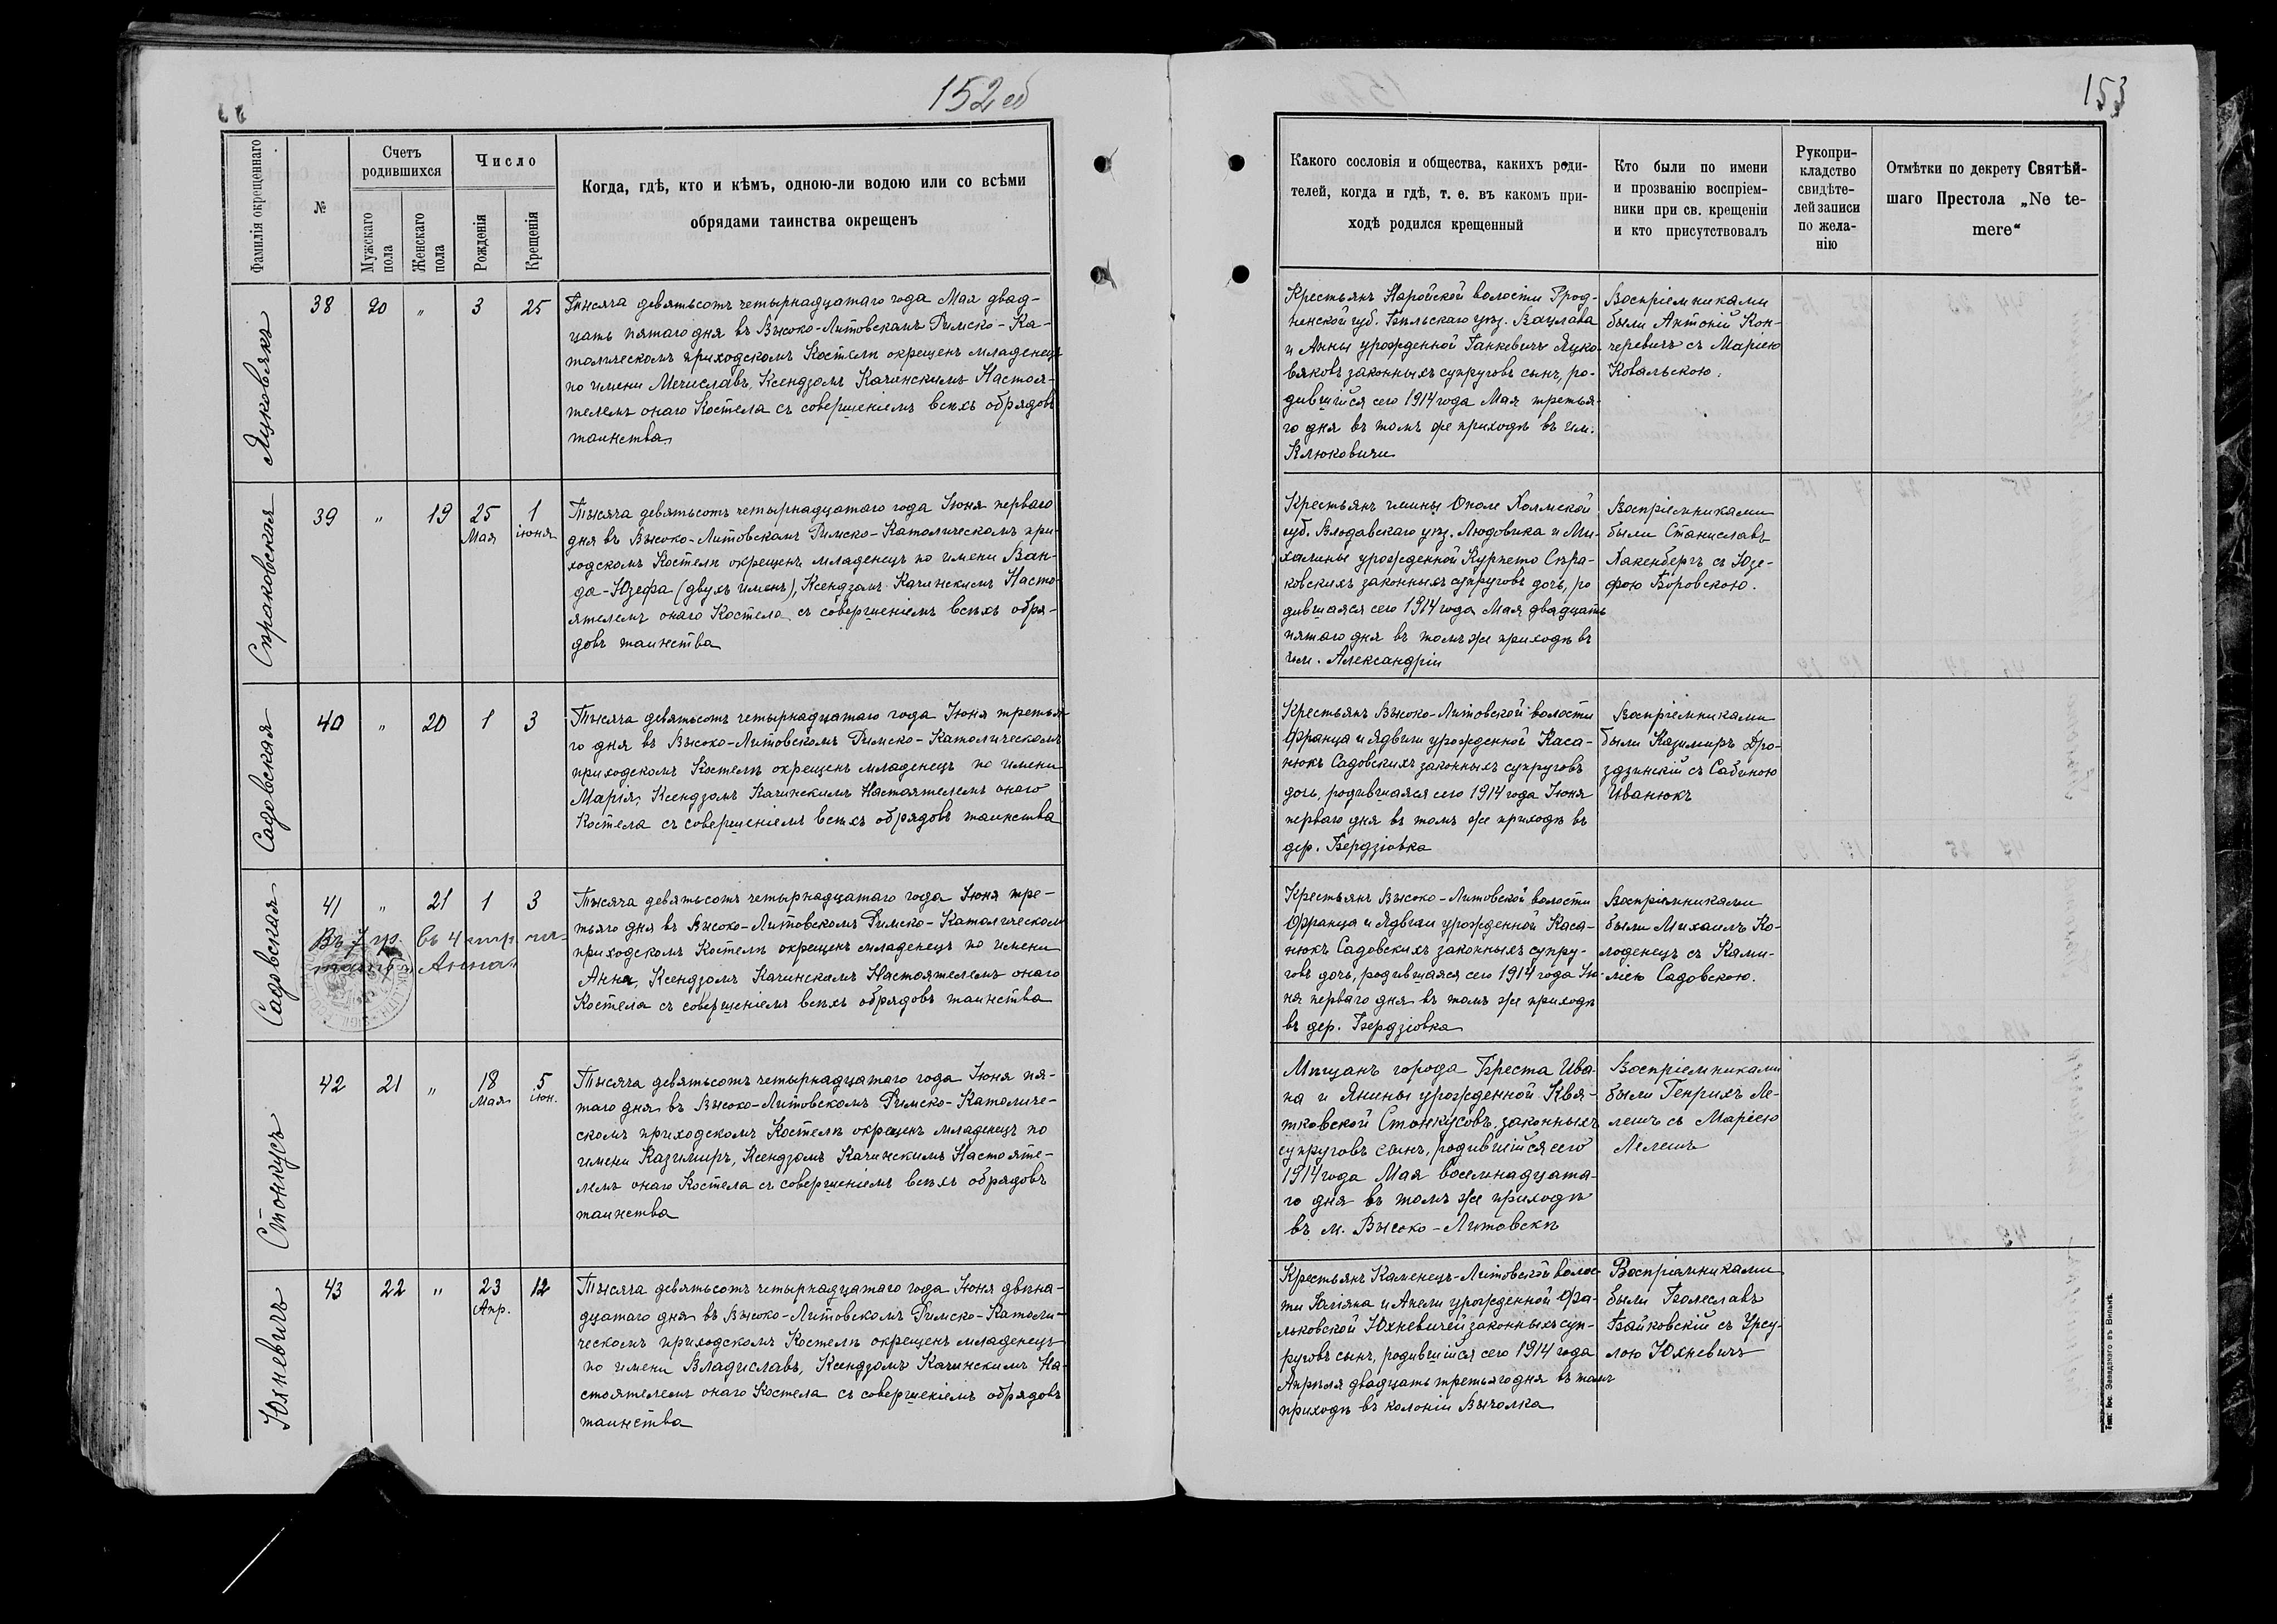 152 об
Фамилія окрещеннаго
№
Счетъ родившихся
Мужскаго пола
Женскаго пола
Число
Рожденія
Крещенія
Когда, гдѣ, кто и кѣмъ, одною-ли водою или со всѣми
обрядами таинства окрещенъ
Яцковлякъ
38 20 " 3 25
Тысяча девятьсотъ четырнадцатаго года Мая двад-
цать пятаго дня въ Высоко-Литовскомъ Римско-Ка-
толическомъ приходскомъ Костелѣ окрещенъ младенецъ
по имени Мечиславъ, Ксендзомъ Качинскимъ Настоя-
телемъ онаго Костела съ совершеніемъ всѣхъ обрядовъ
таинства
Спраковская
39 " 19 25 Мая 1 іюня
Тысяча девятьсотъ четырнадцатаго года Іюня перваго
дня въ Высоко-Литовскомъ Римско-Католическомъ при-
ходскомъ Костелѣ окрещенъ младенецъ по имени Ван-
да-Юзефа (двухъ именъ), Ксендзомъ Качинскимъ Насто-
ятелемъ онаго Костела съ совершеніемъ всѣхъ обря-
довъ таинства
Садовская
40 " 20 1 3
Тысяча девятьсотъ четырнадцатаго года Іюня третья-
го дня въ Высоко-Литовскомъ Римско-Католическомъ
приходскомъ Костелѣ окрещенъ младенецъ по имени
Марія, Ксендзомъ Качинскимъ Настоятелемъ онаго
Костела съ совершеніемъ всѣхъ обрядовъ таинства
Садовская
41 " 21 1 3
Въ 7 гр. въ 4 стр. чи-
тать "Анна"
Тысяча девятьсотъ четырнадцатаго года Іюня тре-
тьяго дня въ Высоко-Литовскомъ Римско-Католическомъ
приходскомъ Костелѣ окрещенъ младенецъ по имени
Анна, Ксендзомъ Качинскимъ Настоятелемъ онаго
Костела съ совершеніемъ всѣхъ обрядовъ таинства
Стонкусъ
42 21 " 18 Мая 5 іюн.
Тысяча девятьсотъ четырнадцатаго года Іюня пя-
таго дня въ Высоко-Литовскомъ Римско-Католиче-
скомъ приходскомъ Костелѣ окрещенъ младенецъ по
имени Казимиръ, Ксендзомъ Качинскимъ Настояте-
лемъ онаго Костела съ совершеніемъ всѣхъ обрядовъ
таинства
Юхневичъ
43 22 " 23 Апр. 12
Тысяча девятьсотъ четырнадцатаго года Іюня двѣна-
дцатаго дня въ Высоко-Литовскомъ Римско-Католи-
ческомъ приходскомъ Костелѣ окрещенъ младенецъ
по имени Владиславъ, Ксендзомъ Качинскимъ На-
стоятелемъ онаго Костела съ совершеніемъ обрядовъ
таинства
153
Какого сословія и общества, какихъ роди-
телей, когда и гдѣ, т. е. въ какомъ при-
ходѣ родился крещенный
Кто были по имени
и прозванію воспріем-
ники при св. крещеніи
и кто присутствовалъ
Рукопри-
кладство
свидѣте-
лей записи
по жела-
нію
Отмѣтки по декрету Святѣй-
шаго Престола „Ne te-
mere“
Крестьянъ Наройской волости Грод-
ненской губ. Бѣльскаго уѣз. Вацлава
и Анны урожденной Ганкевичъ Яцко-
вяковъ законныхъ супруговъ сынъ, ро-
дившійся сего 1914 года Мая третья-
го дня въ томъ же приходѣ въ им.
Клюковичи
Воспріемниками
были Антоній Кон-
черевичъ съ Маріею
Ковальскою.
Крестьянъ гмины Ополе Холмской
губ. Влодавскаго уѣз. Людовика и Ми-
халины урожденной Курпето Спра-
ковскихъ законныхъ супруговъ дочь, ро
дившаяся сего 1914 года Мая двадцать
пятаго дня въ томъ же приходѣ въ
им. Александріи
Воспріемниками
были Станиславъ
Хакенбергъ съ Юзе-
фою Боровскою.
Крестьянъ Высоко-Литовской волости
Франца и Ядвиги урожденной Каса-
нюкъ Садовскихъ законныхъ супруговъ
дочь, родившаяся сего 1914 года Іюня
перваго дня въ томъ же приходѣ въ
дер. Бердзіовка
Воспріемниками
были Казимиръ Дро-
здзинскій съ Сабиною
Иванюкъ
Крестьянъ Высоко-Литовской волости
Франца и Ядвиги урожденной Каса-
нюкъ Садовскихъ законныхъ супру-
говъ дочь, родившаяся сего 1914 года Ію-
ня перваго дня въ томъ же приходѣ
въ дер. Бердзіовка
Воспріемниками
были Михаилъ Ко-
лоденецъ съ Ками-
ліею Садовскою.
Мѣщанъ города Бреста Ива-
на и Янины урожденной Квя-
тковской Стонкусовъ, законныхъ
супруговъ сынъ, родившійся сего
1914 года Мая восемнадцата-
го дня въ томъ же приходѣ
въ м. Высоко-Литовскѣ
Воспріемниками
были Генрихъ Ле-
лешъ съ Маріею
Лелешъ
Крестьянъ Каменецъ-Литовской волос-
ти Юліяна и Анели урожденной Фа-
льковской Юхневичей законныхъ суп-
руговъ сынъ, родившійся сего 1914 года
Апрѣля двадцать третьяго дня въ томъ
приходѣ въ колоніи Вычолка
Воспріемниками
были Болеславъ
Байковскій съ Урсу-
лою Юхневичъ
Тип. Іос. Завадзкаго въ Вильнѣ.